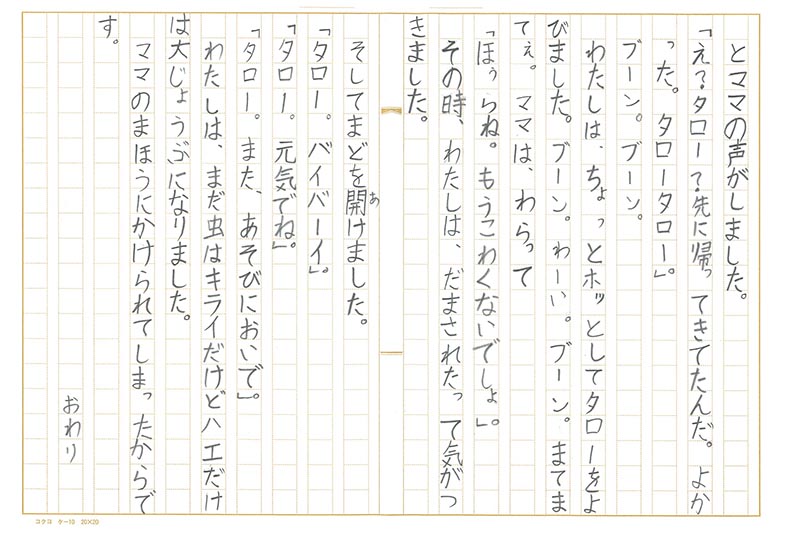 とママの声がしました。
「え?タロー?先に帰ってきてたんだ。よか
った。タロータロー」。
ブーン。ブーン。
わたしは、ちょっとホッとしてタローをよ
びました。ブーン。わーい。ブーン。まてま
てぇ。ママは、わらって
「ほぅらね。もうこわくないでしょ」。
その時、わたしは、だまされたって気がつ
きました。
そしてまどを開けました。
あ
「タロー。バイバーイ」。
「タロー。元気でね」。
「タロー。また、あそびにおいで」。
わたしは、まだ虫はキライだけどハエだけ
は大じょうぶになりました。
ママのまほうにかけられてしまったからで
す。
おわり
コクヨ ケー10 20×20